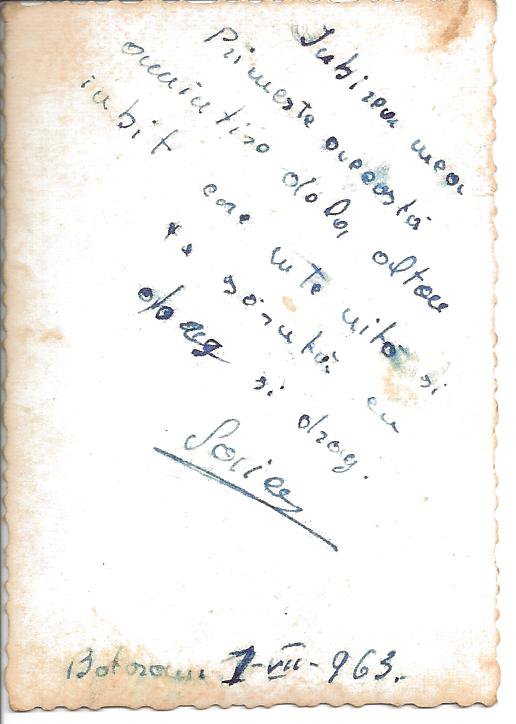 Iubirea mea
Primeste această
amintire dela altau
iubit care nu te uită si
te sărută cu
drag si drag.
Botosani 1-VII-963.